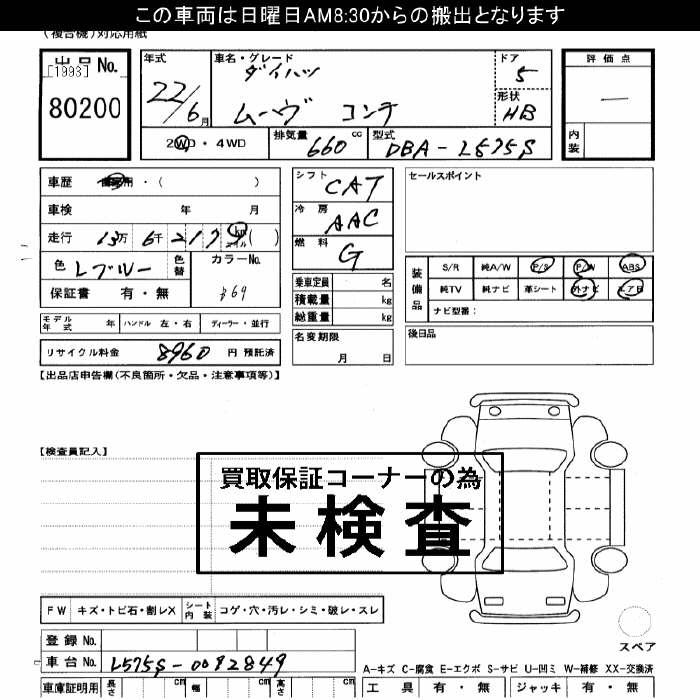 この車両は日曜日AM8:30からの搬出となります
(複合機)対応用紙
出品No.
[1993]
80200
年式
22/6月
車名・グレード
ダイハツ
ムーヴ コンテ
ドア
5
形状
HB
2WD・4WD
排気量 660 cc
型式 DBA-L575S
評価点
—
内装
車歴 自家用・( )
車検 年 月
走行 13万 6千 2179 km マイル ( )
色 Lブルー
色替
カラーNo.
保証書 有・無
シフト CAT
冷房 AAC
燃料 G
乗車定員 名
積載量 kg
総重量 kg
セールスポイント
装備品
S/R 純A/W P/S P/W ABS
純TV 純ナビ 革シート 外ナビ エアB
ナビ型番:
モデル年式 年 ハンドル 左・右 ディーラー・並行
リサイクル料金 8960 円 預託済
名変期限
月 日
後日品
【出品店申告欄(不良箇所・欠品・注意事項等)】
【検査員記入】
買取保証コーナーの為
未検査
FW キズ・トビ石・割レX シート内装 コゲ・穴・汚レ・シミ・破レ・スレ
登録No.
車台No. L575S-0082849
車庫証明用 長さ cm 幅 cm 高さ cm
スペア
A-キズ C-腐食 E-エクボ S-サビ U-凹ミ W-補修 XX-交換済
工具 有・無 ジャッキ 有・無